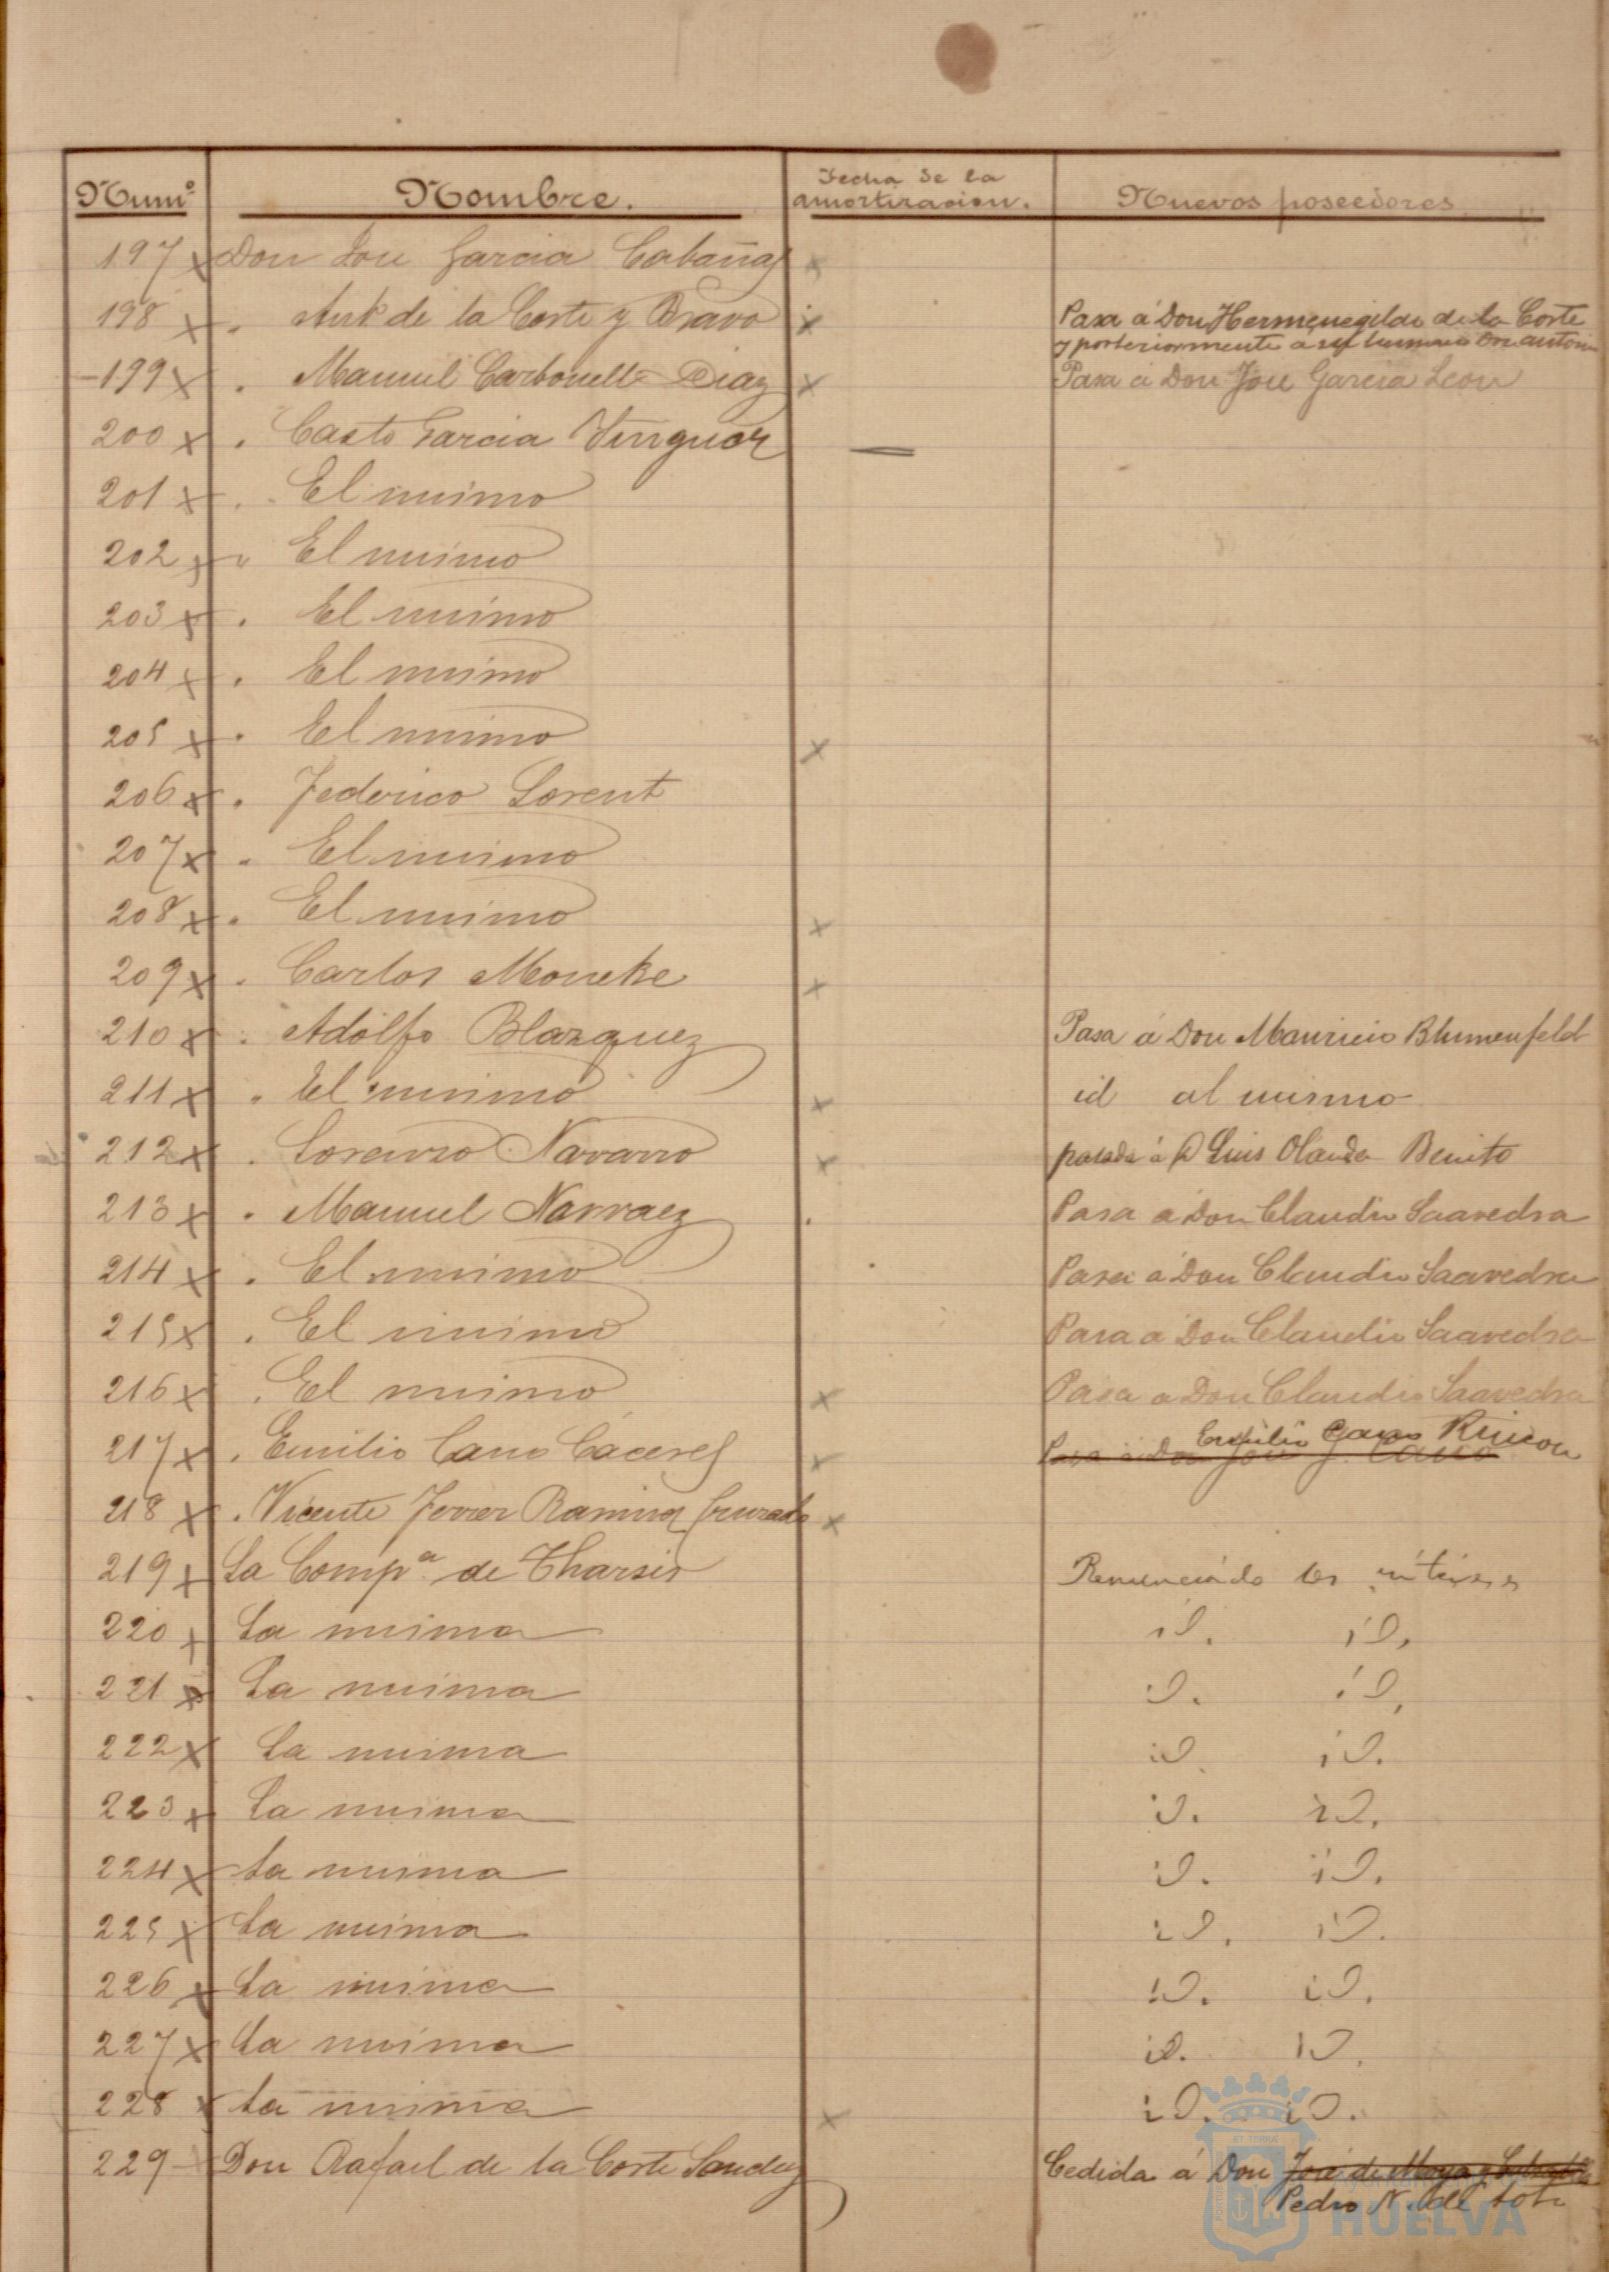 Num.º Nombre. Fecha de la amortizacion. Nuevos poseedores
197 x Don José Garcia Cabañas x
198 x " Antº de la Corte y Bravo x Pasa á Don Hermenegildo de la Corte
y posteriormente a su hermano Don Antonio
199 x " Manuel Carbonell Diaz x Pasa á Don José Garcia Leon
200 x " Casto Garcia —
201 x " El mismo
202 x " El mismo
203 x " El mismo
204 x " El mismo
205 x " El mismo x
206 x " Federico Lorent
207 x " El mismo
208 x " El mismo x
209 x " Carlos Moncke x
210 x " Adolfo Blazquez Pasa á Don Mauricio Blumenfeld
211 x " El mismo x id al mismo
212 x " Lorenzo Navarro x pasada á D Luis Olanda Benito
213 x " Manuel Narvaez Pasa á Don Claudio Saavedra
214 x " El mismo Pasa á Don Claudio Saavedra
215 x " El mismo Pasa á Don Claudio Saavedra
216 x " El mismo x Pasa á Don Claudio Saavedra
217 x " Emilio Cano Cáceres x Pasa á Don José J. Cano Emilio Cano Rincon
218 x " Vicente Ferrer Ramirez Cruzado x
219 x La Comp.ª de Tharsis Renunciado los
220 x La misma id. id.
221 x La misma id. id.
222 x La misma id. id.
223 x La misma id. id.
224 x La misma id. id.
225 x La misma id. id.
226 x La misma id. id.
227 x La misma id. id.
228 x La misma x id. id.
229 Don Rafael de la Corte Sanchez Cedida á Don José de Moya y
Pedro N. de Soto
HUELVA